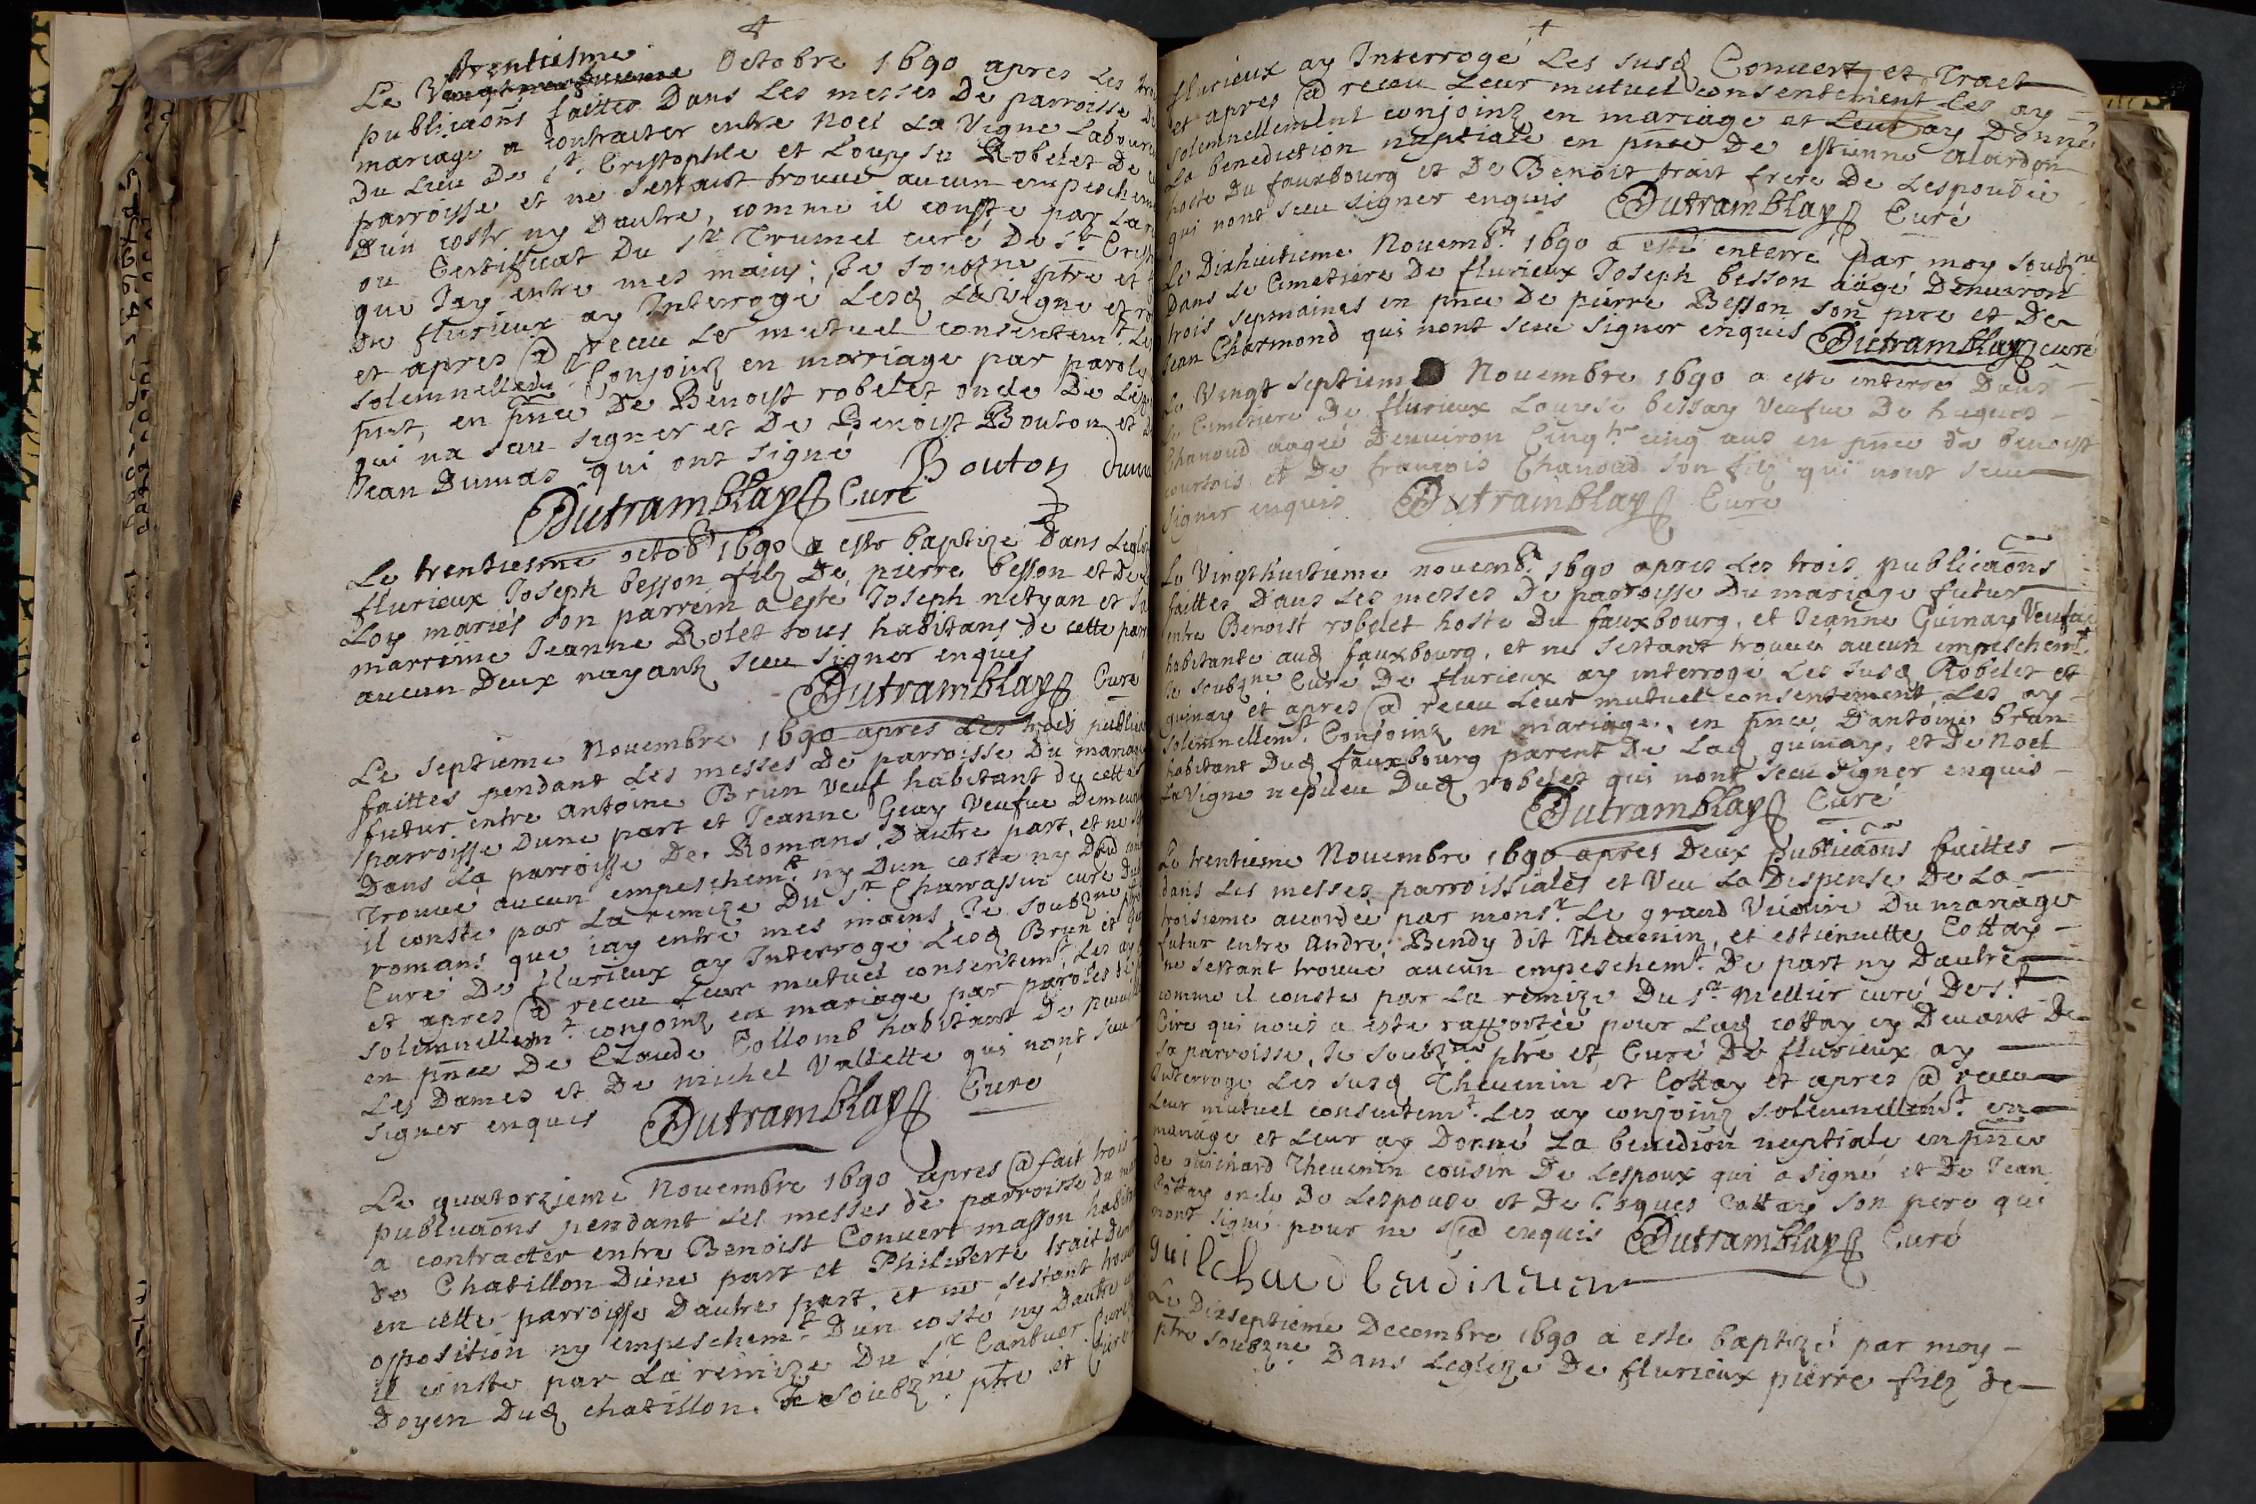 trentiesme
Le Octobre 1690 apres Les
publicaōns faittes Dans Les messes De parroisse
mariage a contracter entre Noel La Vigne Laboure
Du Lieu De St Cristophle et Louyse Robelet De
parroisse et ne sestant trouué aucun empeschem
Dun costé ny Dautre, comme il conste par La
ou Certifficat Du Sr Trumel curé De St Crist
que Jay entre mes mains: Je soubzne ptre et
De flurieux ay Interrogé Lesq LaVigne et ro
et apres @ receu Le mutuel consentemt Les
solemnellemt Conjoinz en mariage par parolles
pnt, en pnce De Benoist robelet oncle De Lesp
qui na sceu signer et De Benoist Bouton et
Jean Dumas qui ont signé Bouton Duma
Dutramblay Curé
Le trentiesme octob 1690 a esté baptize Dans Legli
flurieux Joseph besson filz De pierre besson et De
Loy mariés son parrein a esté Joseph netyan et sa
marreine Jeanne Rolet tous habitans de cette par
aucun Deux nayantz sceu signer enques
Dutramblay Curé
Le septieme Nouembre 1690 apres Les trois public
faittes pendant Les messes De parroisse Du mariage
futur entre Antoine Brun Veuf habitant de cette
parroisse Dune part et Jeanne Guay Veufue Demeur
Dans La parroisse De Romans Dautre part, et ne
Trouué aucun empeschemt ny Dun costé ny
il conste par La remize Du Sr Charassin curé Du
romans que iay entre mes mains, Je soubzne ptre
Curé De flurieux ay Interrogé Lesq Brun et
et apres @ receu Leur mutuel consentemt Les ay
solemnellemt conjoinz en mariage par paroles
en pnce De Claude Collomb habitant De neuuille
Les Dames et De michel Vallette qui nont sceu
signer enquis Dutramblay Curé
Le quatorzieme Nouembre 1690 apres @ fait trois
publicaōns pendant Les messes de parroisse du
a contracter entre Benoist Conuert masson habit
de Chatillon Dune part et Philiberte trait De
en cette parroisse Dautre part, et ne sestant trou
opposition ny empeschemt Dun costé ny Dautre
il conste par La remize Du Sr Curé
Doyen Duq chatillon. Je soubzne ptre et Curé
flurieux ay Interrogé Les susq Conuert et Trait
et apres @ receu Leur mutuel consentement Les ay
solemnellement conjoinz en mariage et Leur ay Donné
La benediction nuptiale en pnce De estienne alardon
hoste Du fauxbourg et De Benoit trait frere De Lespousée
qui nont sceu signer enquis Dutramblay Curé
Le Dixhuitieme Nouembr 1690 a esté enterré par moy soubzne
Dans Le Cimetiere De flurieux Joseph besson aagé Denuiron
trois sepmaines en pnce De pierre Besson son pere et De
Jean Charmond qui nont sceu signer enques Dutramblay curé
Le Vingt septiem Nouembre 1690 a esté enterré Dans
Le Cimetiere De flurieux Louyse bessay Veufue De hugues
Chanoud aagée Denuiron Cinqte cinq ans en pnce de benoist
courtois et De francois Chanoud son filz qui nont sceu
signer enquis Dutramblay Curé
Le Vingthuitieme nouembr 1690 apres Les trois publicaōns
faittes Dans Les messes De parroisse Du mariage futur
entre Benoist robelet hoste Du fauxbourg, et Jeanne Guinay Veufue
habitante auq fauxbourg, et ne sestant trouué aucun empeschemt
Je soubzne Curé De flurieux ay interrogé Les susq Robelet et
guinay et apres @ receu Leur mutuel consentement Les ay
solemnellemt Conjoinz en mariage, en pnce Dantoine brun
habitant Duq fauxbourg parent De Laq guinay, et De Noel
LaVigne nepueu Duq robelet qui nont sceu signer enquis
Dutramblay Curé
Le trentieme Nouembre 1690 apres Deux publicaōns faittes
dans Les messes parroissiales et Veu La Dispense De La
troisieme accordée par monsr Le grand Vicaire Du mariage
futur entre André Bendy dit Theuenin, et estiennette Cottay
ne sestant trouué aucun empeschemt De part ny Dautre
comme il conste par La remize Du Sr Mellier curé De St
Cire qui nous a esté rapportée pour Laq cottay cy Deuant De
sa parroisse, Je soubzne ptre et Curé De flurieux ay
Interrogé Les susq Theuenin et Cottay et apres @ receu
Leur mutuel consentemt Les ay conjoinz solemnellemt en
mariage et Leur ay Donné La benedion nuptiale en pnce
de guichard Theuenin cousin De Lespoux qui a signé et De Jean
Cottay oncle De Lespouse et De Jaques Cottay son pere qui
nont signé pour ne s@ enquis Dutramblay Curé
Le Dixseptieme Decembre 1690 a esté baptizé par moy
ptre soubzne Dans Leglize De flurieux pierre filz de